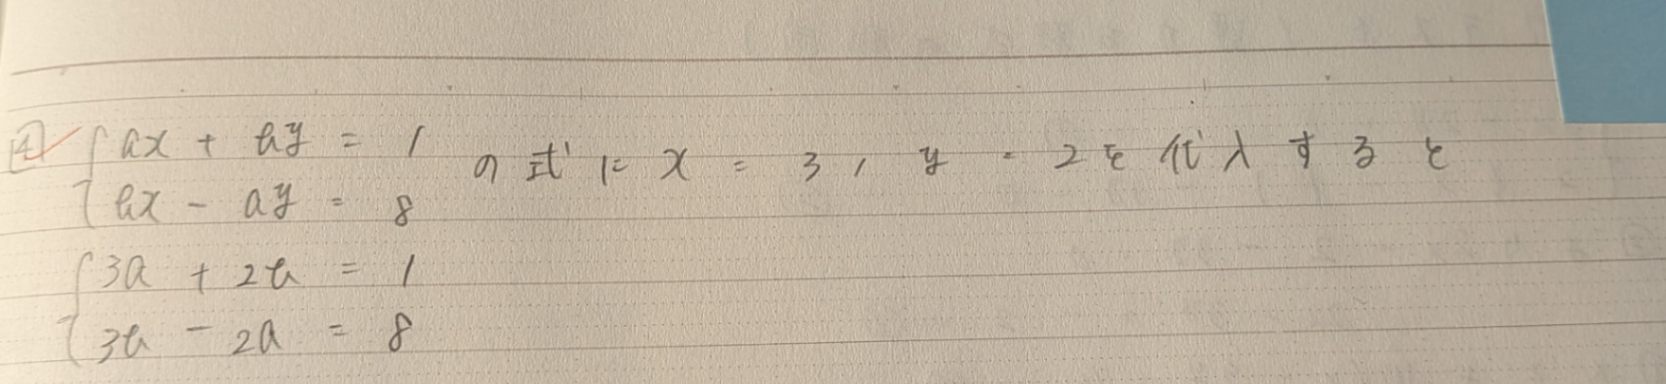 4 { ax + by = 1
{ bx - ay = 8 の式に x = 3, y = 2を代入すると
{ 3a + 2b = 1
{ 3b - 2a = 8